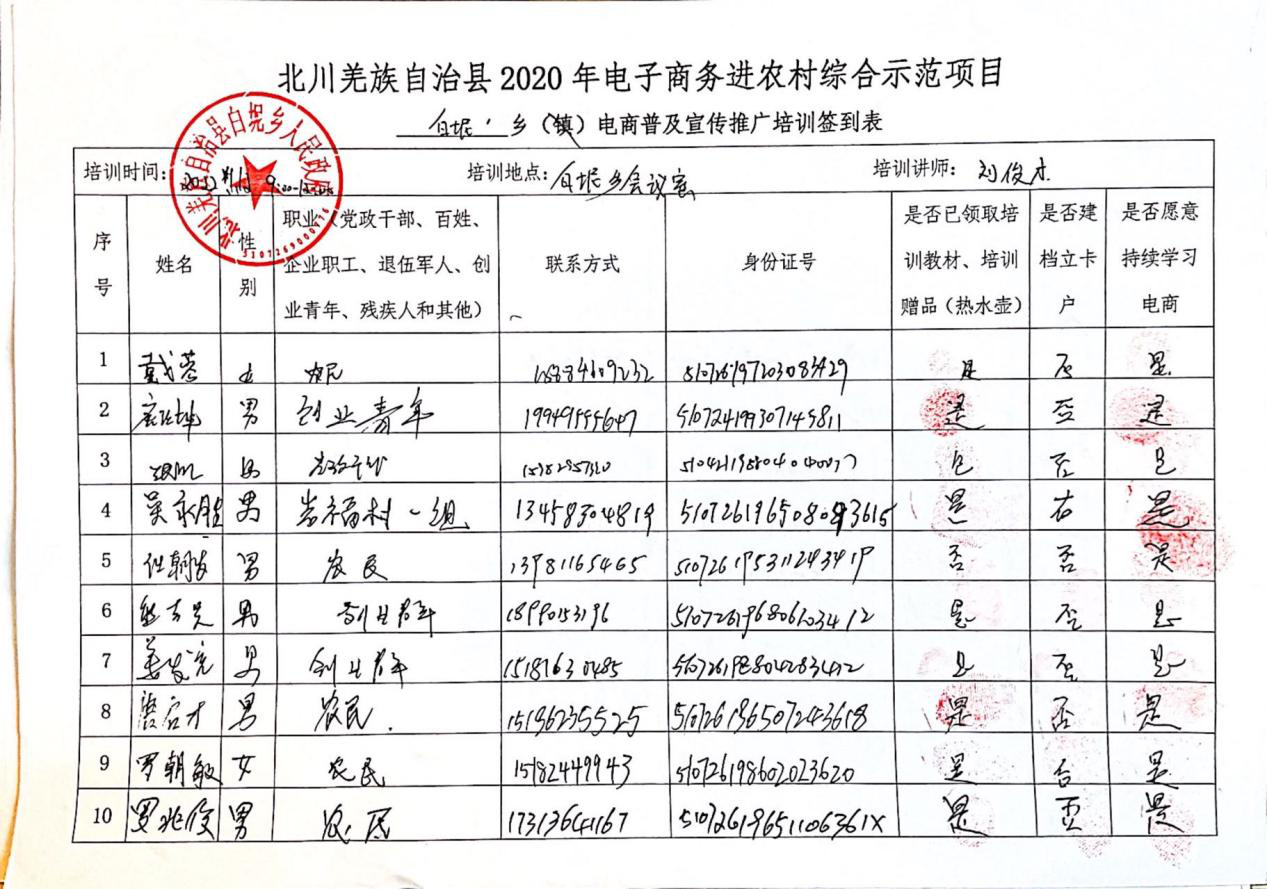 北川羌族自治县2020年电子商务进农村综合示范项目
白坭乡（镇）电商普及宣传推广培训签到表
培训时间： 培训地点：白坭乡会议室 培训讲师：刘俊杰
序号 姓名 性别 职业（党政干部、百姓、企业职工、退伍军人、创业青年、残疾人和其他） 联系方式 身份证号 是否已领取培训教材、培训赠品（热水壶） 是否建档立卡户 是否愿意持续学习电商
1 戴蓉 女 农民 510726197203083429 是 否 是
2 男 创业青年 19949555647 510724199307145811 是 否 是
3 男 否
4 吴永胜 男 岩福村一组 13458304819 是 否 是
5 任朝发 男 农民 13981165465 510726195311243419 否 否 是
6 男 创业青年 1899053196 是 否 是
7 男 创业青年 15181630485 是 否 是
8 男 农民. 15196235525 510726196507243618 是 否 是
9 罗朝敏 女 农民 15182449943 510726198602023620 是 否 是
10 罗兆俊 男 农民 17313641167 51072619651106361X 是 否 是
北川羌族自治县白坭乡人民政府
5107269000916